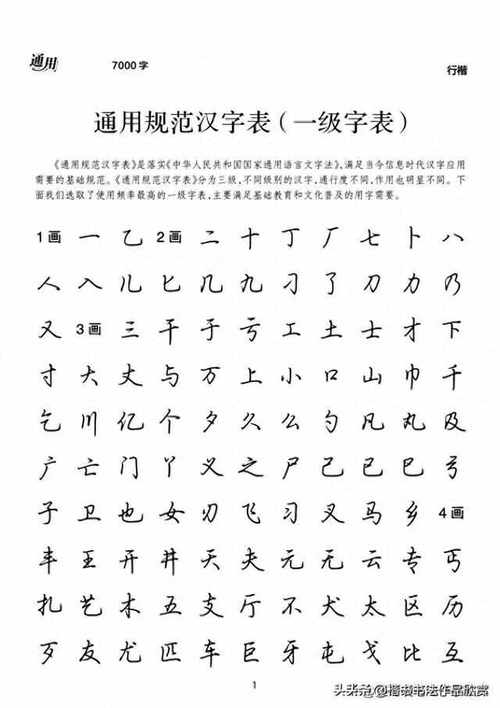 通用 7000字 行楷
通用规范汉字表（一级字表）
《通用规范汉字表》是落实《中华人民共和国国家通用语言文字法》，满足当今信息时代汉字应用
需要的基础规范。《通用规范汉字表》分为三级，不同级别的汉字，通行度不同，作用也明显不同。下
面我们选取了使用频率最高的一级字表，主要满足基础教育和文化普及的用字需要。
1画 一 乙 2画 二 十 丁 厂 七 卜 八
人 入 儿 匕 几 九 刁 了 刀 力 乃
又 3画 三 干 于 亏 工 土 士 才 下
寸 大 丈 与 万 上 小 口 山 巾 千
乞 川 亿 个 夕 久 么 勺 凡 丸 及
广 亡 门 丫 义 之 尸 己 已 巳 弓
子 卫 也 女 刃 飞 习 叉 马 乡 4画
丰 王 开 井 天 夫 元 无 云 专 丐
扎 艺 木 五 支 厅 不 犬 太 区 历
歹 友 尤 匹 车 巨 牙 屯 戈 比 互
1
头条@楷书书法作品欣赏